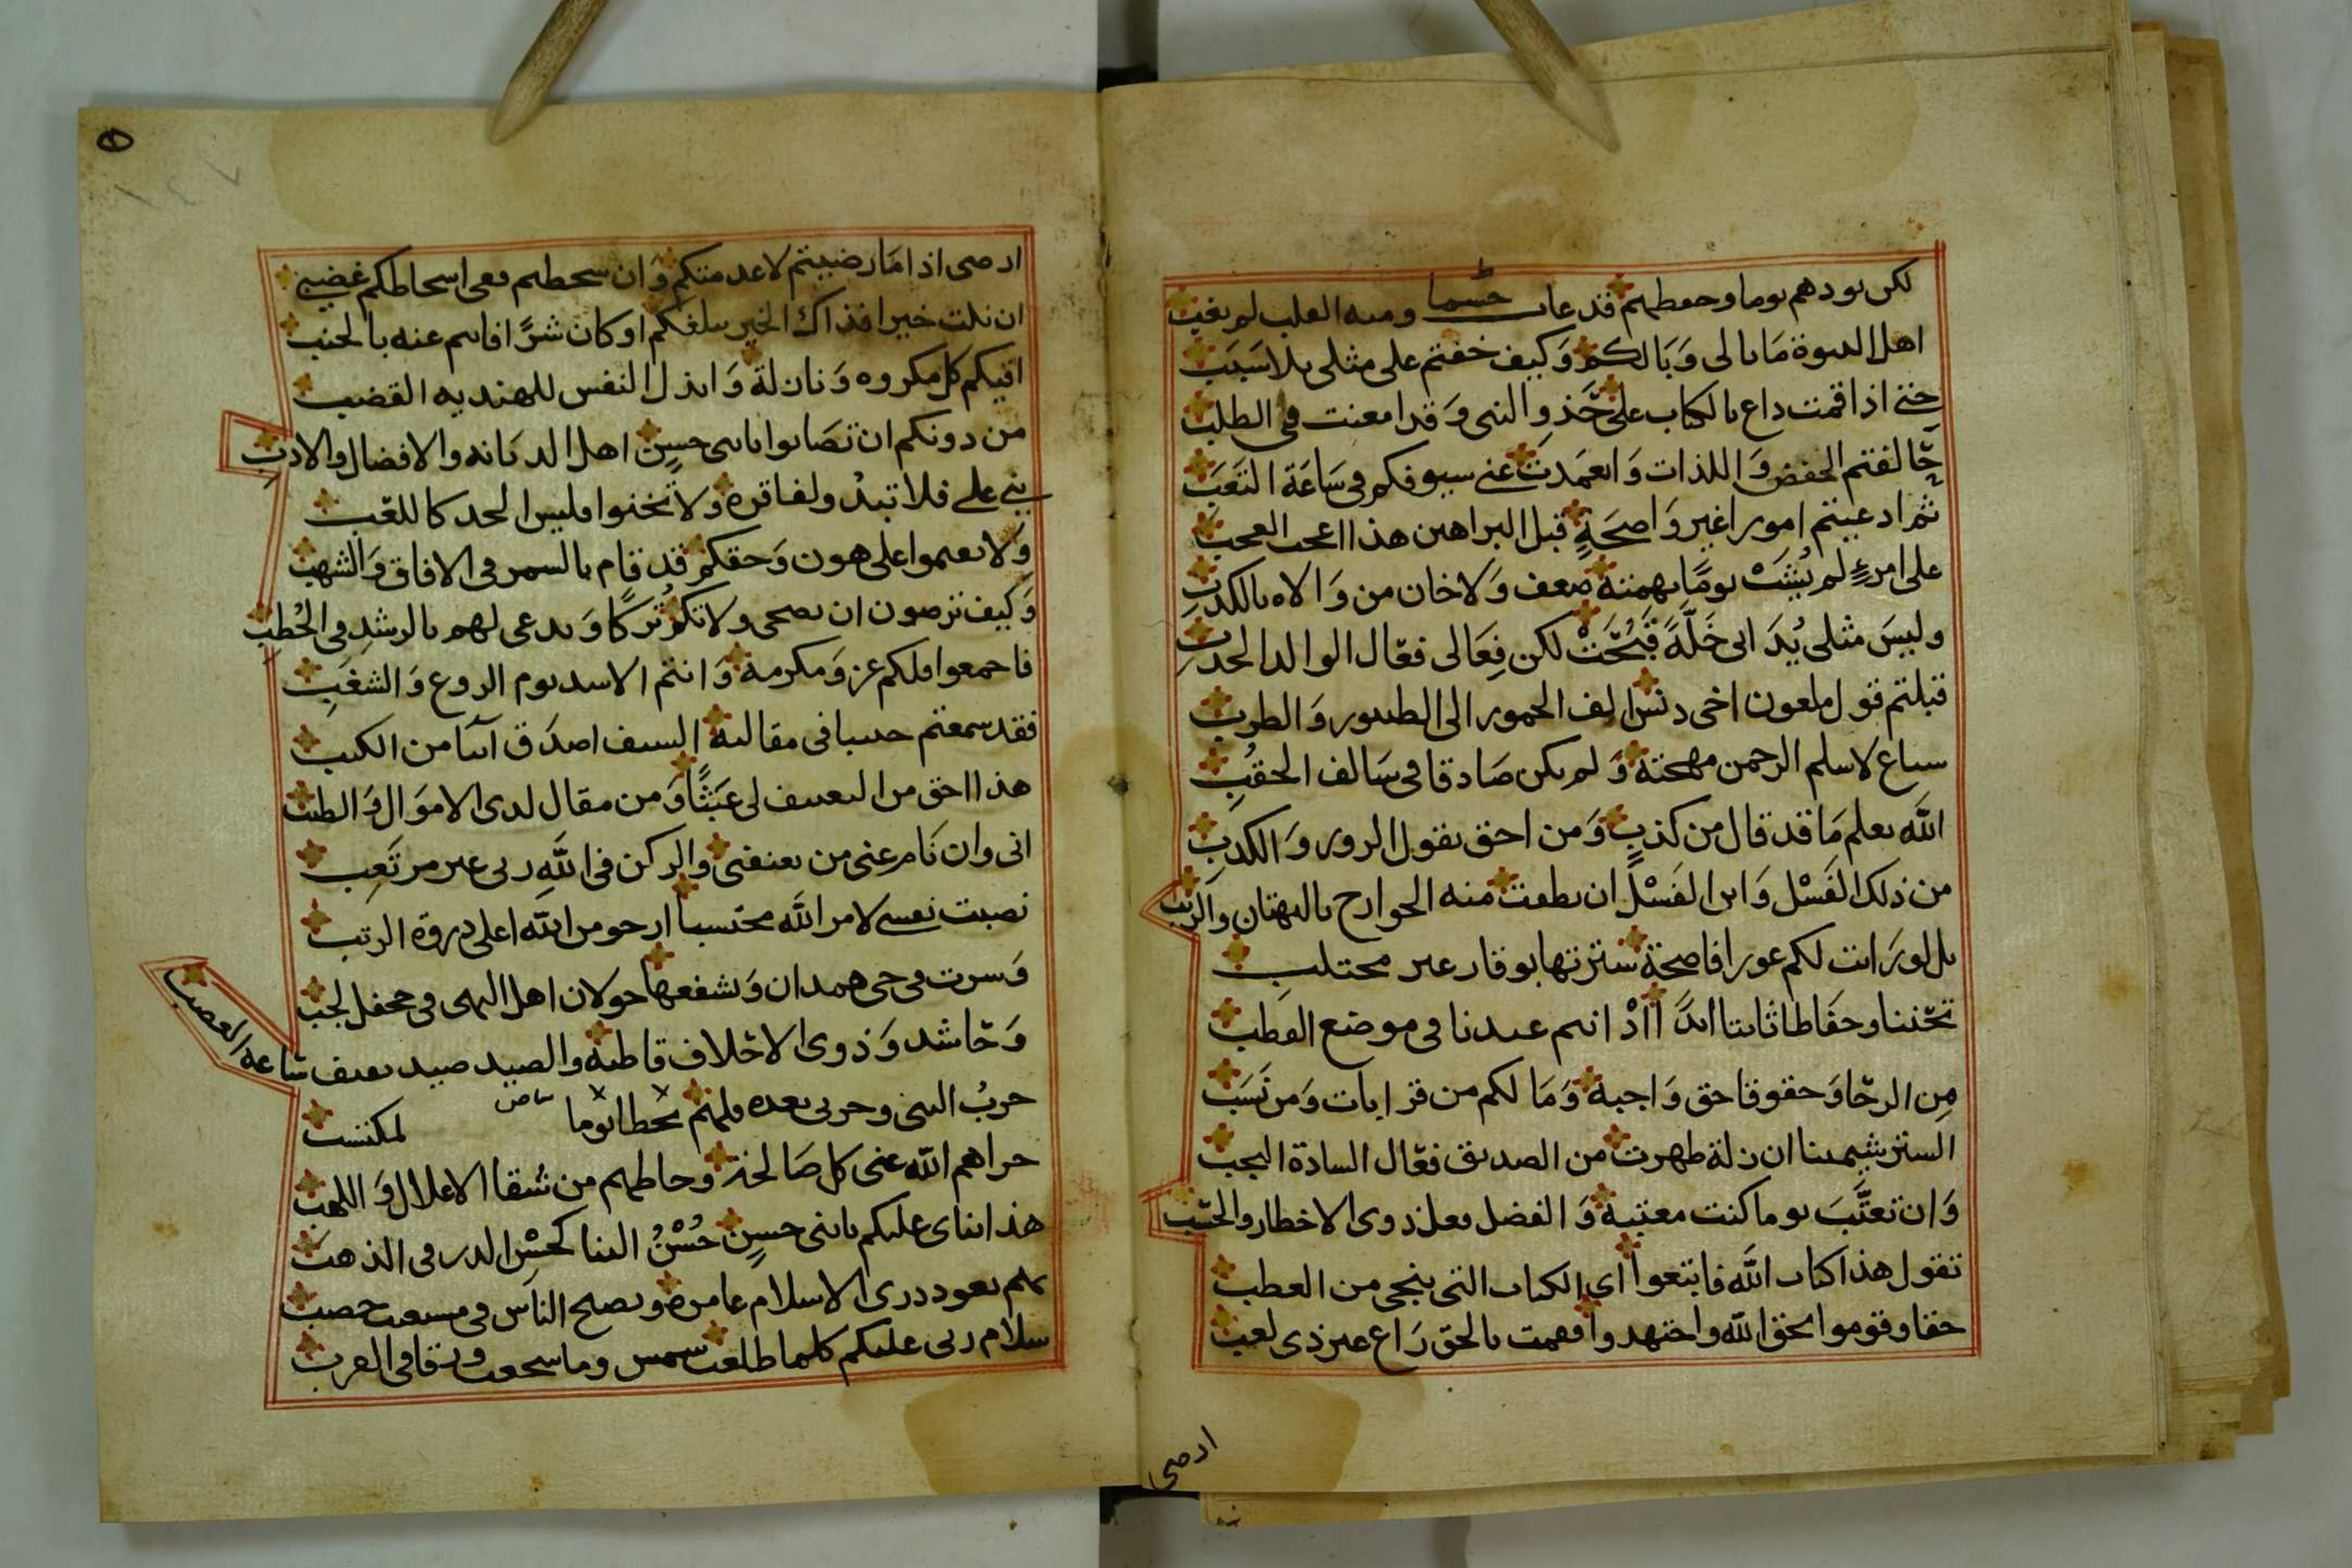 لكن نودهم يوما وحفظهم قد غاب جسما ومنه القلب لم يغب
اهل النبوة ما بالي وبالكم وكيف خفتم على مثلي بلا سبب
حتى اذا قمت داع بالكتاب على حَذوِ النبي وقد امعنت في الطلب
حالفتم الخفض واللذات وانغمدت عني سيوفكم في ساعة التعب
ثم ادعيتم امورا غير واضحةٍ قبل البراهين هذا اعجب العجب
على امرءٍ لم يُشَبْ يومًا بهمته ضعف ولا خان من والاه بالكذب
وليسَ مثلي يُدَانى خَلَّةً قَبُحَتْ لكن فِعَالى فعّال الوالد الحدب
قبلتم قول ملعون اخي دنس الف الخمور الى الطنبور والطرب
سباع لا سلم الرحمن مهجته ولم يكن صادقا في سالف الحقُبِ
الله يعلم ما قد قال من كذبٍ ومن احق بقول الزور والكذبِ
من ذلك الفَسْل وابن الفَسْل ان نطقت منه الجوارح بالبهتان والريب
بل لو رايت لكم عورا فاضحة سترتها بوقار غير مجتلب
تحننا وحفاظا ثابتا ابدًا اذْ انتم عندنا في موضع القطب
مِن الرحا وحقوقا حق واجبة وما لكم من قرابات ومن نسب
الستر شيمتنا ان زلة ظهرت من الصديق فعّال السادة النجب
وان تعتَّبَ يوما كنت معتبه والفضل فعل ذوى الاخطار والحسب
تقول هذا كتاب الله فاتبعوا اى الكتاب التى ينجى من العطب
حقا وقوموا بحق الله واجتهدوا فهمت بالحق راع غير ذى لعب
ارضى
ارضى اذا ما رضيتم لا عدمتكم وان سخطتم ففى اسخاطكم غضبي
ان نلت خيرا فذاك الخير يبلغكم او كان شرًّا فانتم عنه بالجنب
اقيكم كل مكروه ونازلة وابذل النفس للهنديه القضب
من دونكم ان تصابوا يا بنى حسنٍ اهل الديانه والافضال والادب
بني علي فلا تبدُ ولفاقره ولا تخنوا فليس الجد كاللعّب
ولا تغموا على هون وحقكم قد قام بالسمر في الافاق والشهب
وكيف ترضون ان يضحى ولاتكم تُركًا ويدعى لهم بالرشدِ في الخُطبِ
فاجمعوا فلكم عز ومكرمة وانتم الاسد يوم الروع والشغَب
فقد سمعتم حبيبا في مقالته السيف اصدَق انبآ من الكتب
هذا احق من التعنيف لى عَبَثًا ومن مقال لدى الاموال والطنب
انى وان نام عنى من يعنفنى والركن في اللهِ ربى غير مرتَعِب
نصبت نفسى لامر الله محتسبا ارجو من الله اعلى ذروة الرتب
وسرت في حى همدان وتشفعها خولان اهل النهى في جحفل لجب
وحاشد وذوى الاحلاف قاطبة والصيد صيد بعيف شاعه العصب
حربُ النبى وحربى بعده فلهم يخطا يوما بياض لمكتسب
جزاهم الله عنى كل صالحة وحاطهم من شقا الاغلال واللهب
هذا ثناى عليكم يا بنى حسنٍ حُسْنُ الثنا كحُسْنِ الدر في الذهب
بكم يعود ذرى الاسلام عامره ويصبح الناس في مستعب خصب
سلام ربى عليكم كلما طلعت شمس وما سجعت ورقا في العرب